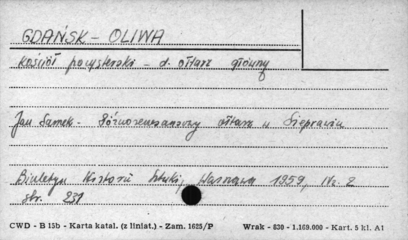 GDAŃSK - OLIWA
Kościół pocysterski - d. ołtarz główny
Jan Samek - Późnorenesansowy ołtarz w Sieprawiu
Biuletyn Historii Sztuki, Warszawa 1959, Nr. 2
str. 231
CWD - B 15b - Karta katal. (z liniat.) - Zam. 1625/P Wrak - 830 - 1.169.000 - Kart. 5 kl. A1